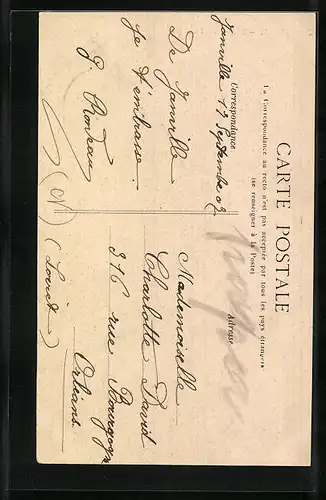 CARTE POSTALE
La Correspondance au recto n'est pas acceptée par tous les pays étrangers
(se renseigner à la Poste)
Correspondance
Adresse
Janville 17 Septembre 09
De Janville
je t'embrasse
G. Rondeau
Mademoiselle
Charlotte David
316 rue Bourgogne
Orléans
(Loiret)